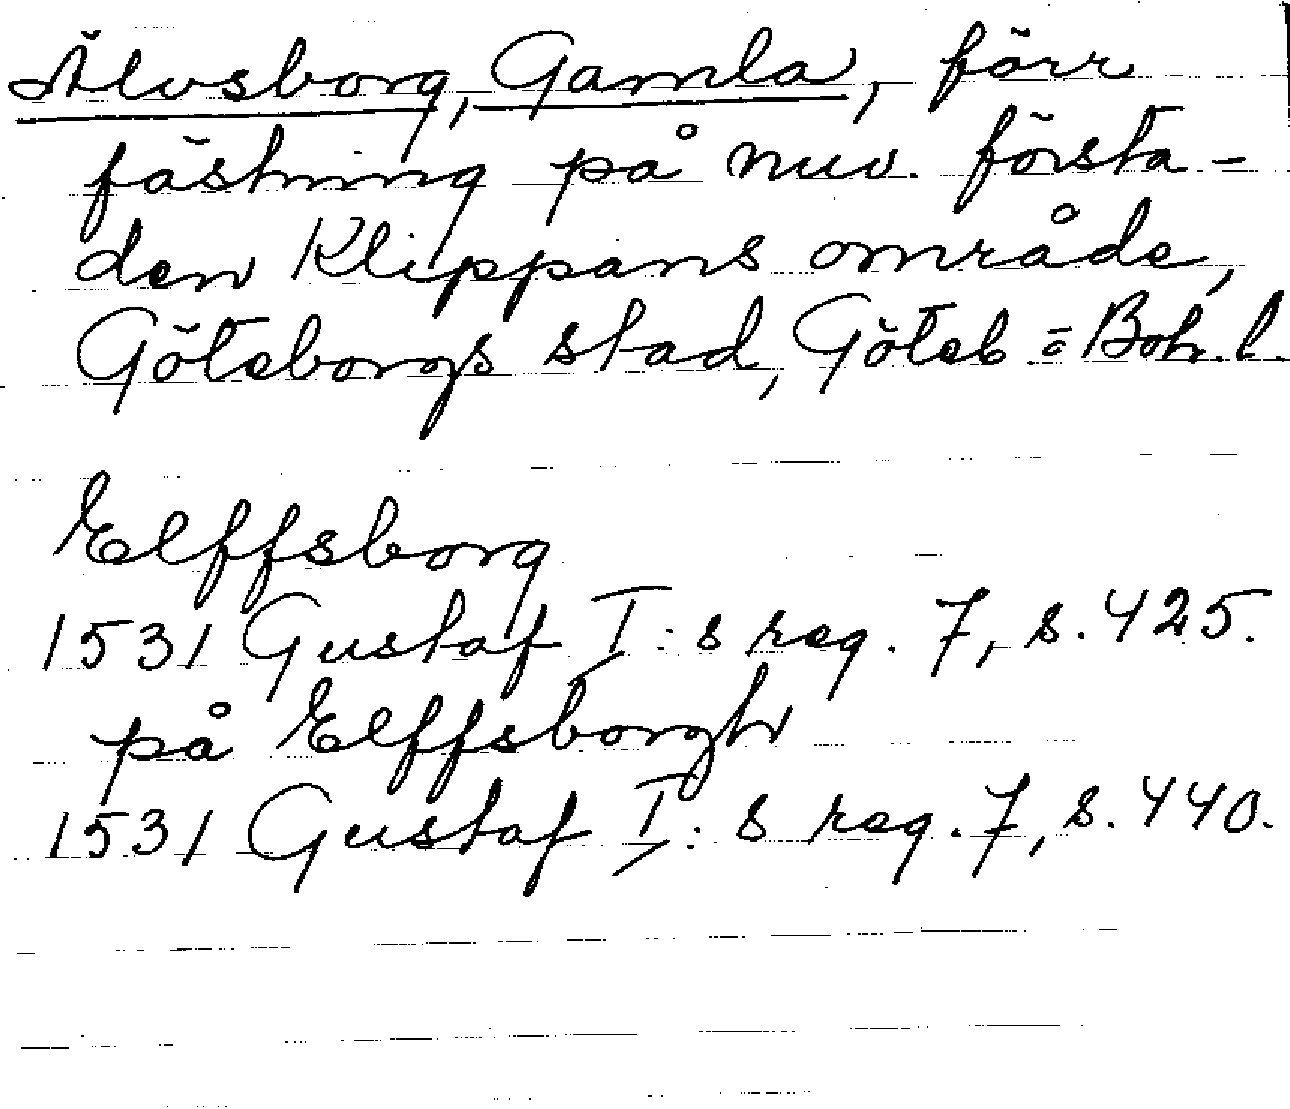 Älvsborg, Gamla, förr
fästning på nuv. första-
den Klippans område,
Göteborgs stad, Göteb = Boh. l.
Elffsborg
1531 Gustaf I:s reg. 7, s. 425.
på Elffsborgh
1531 Gustaf I:s reg. 7, s. 440.